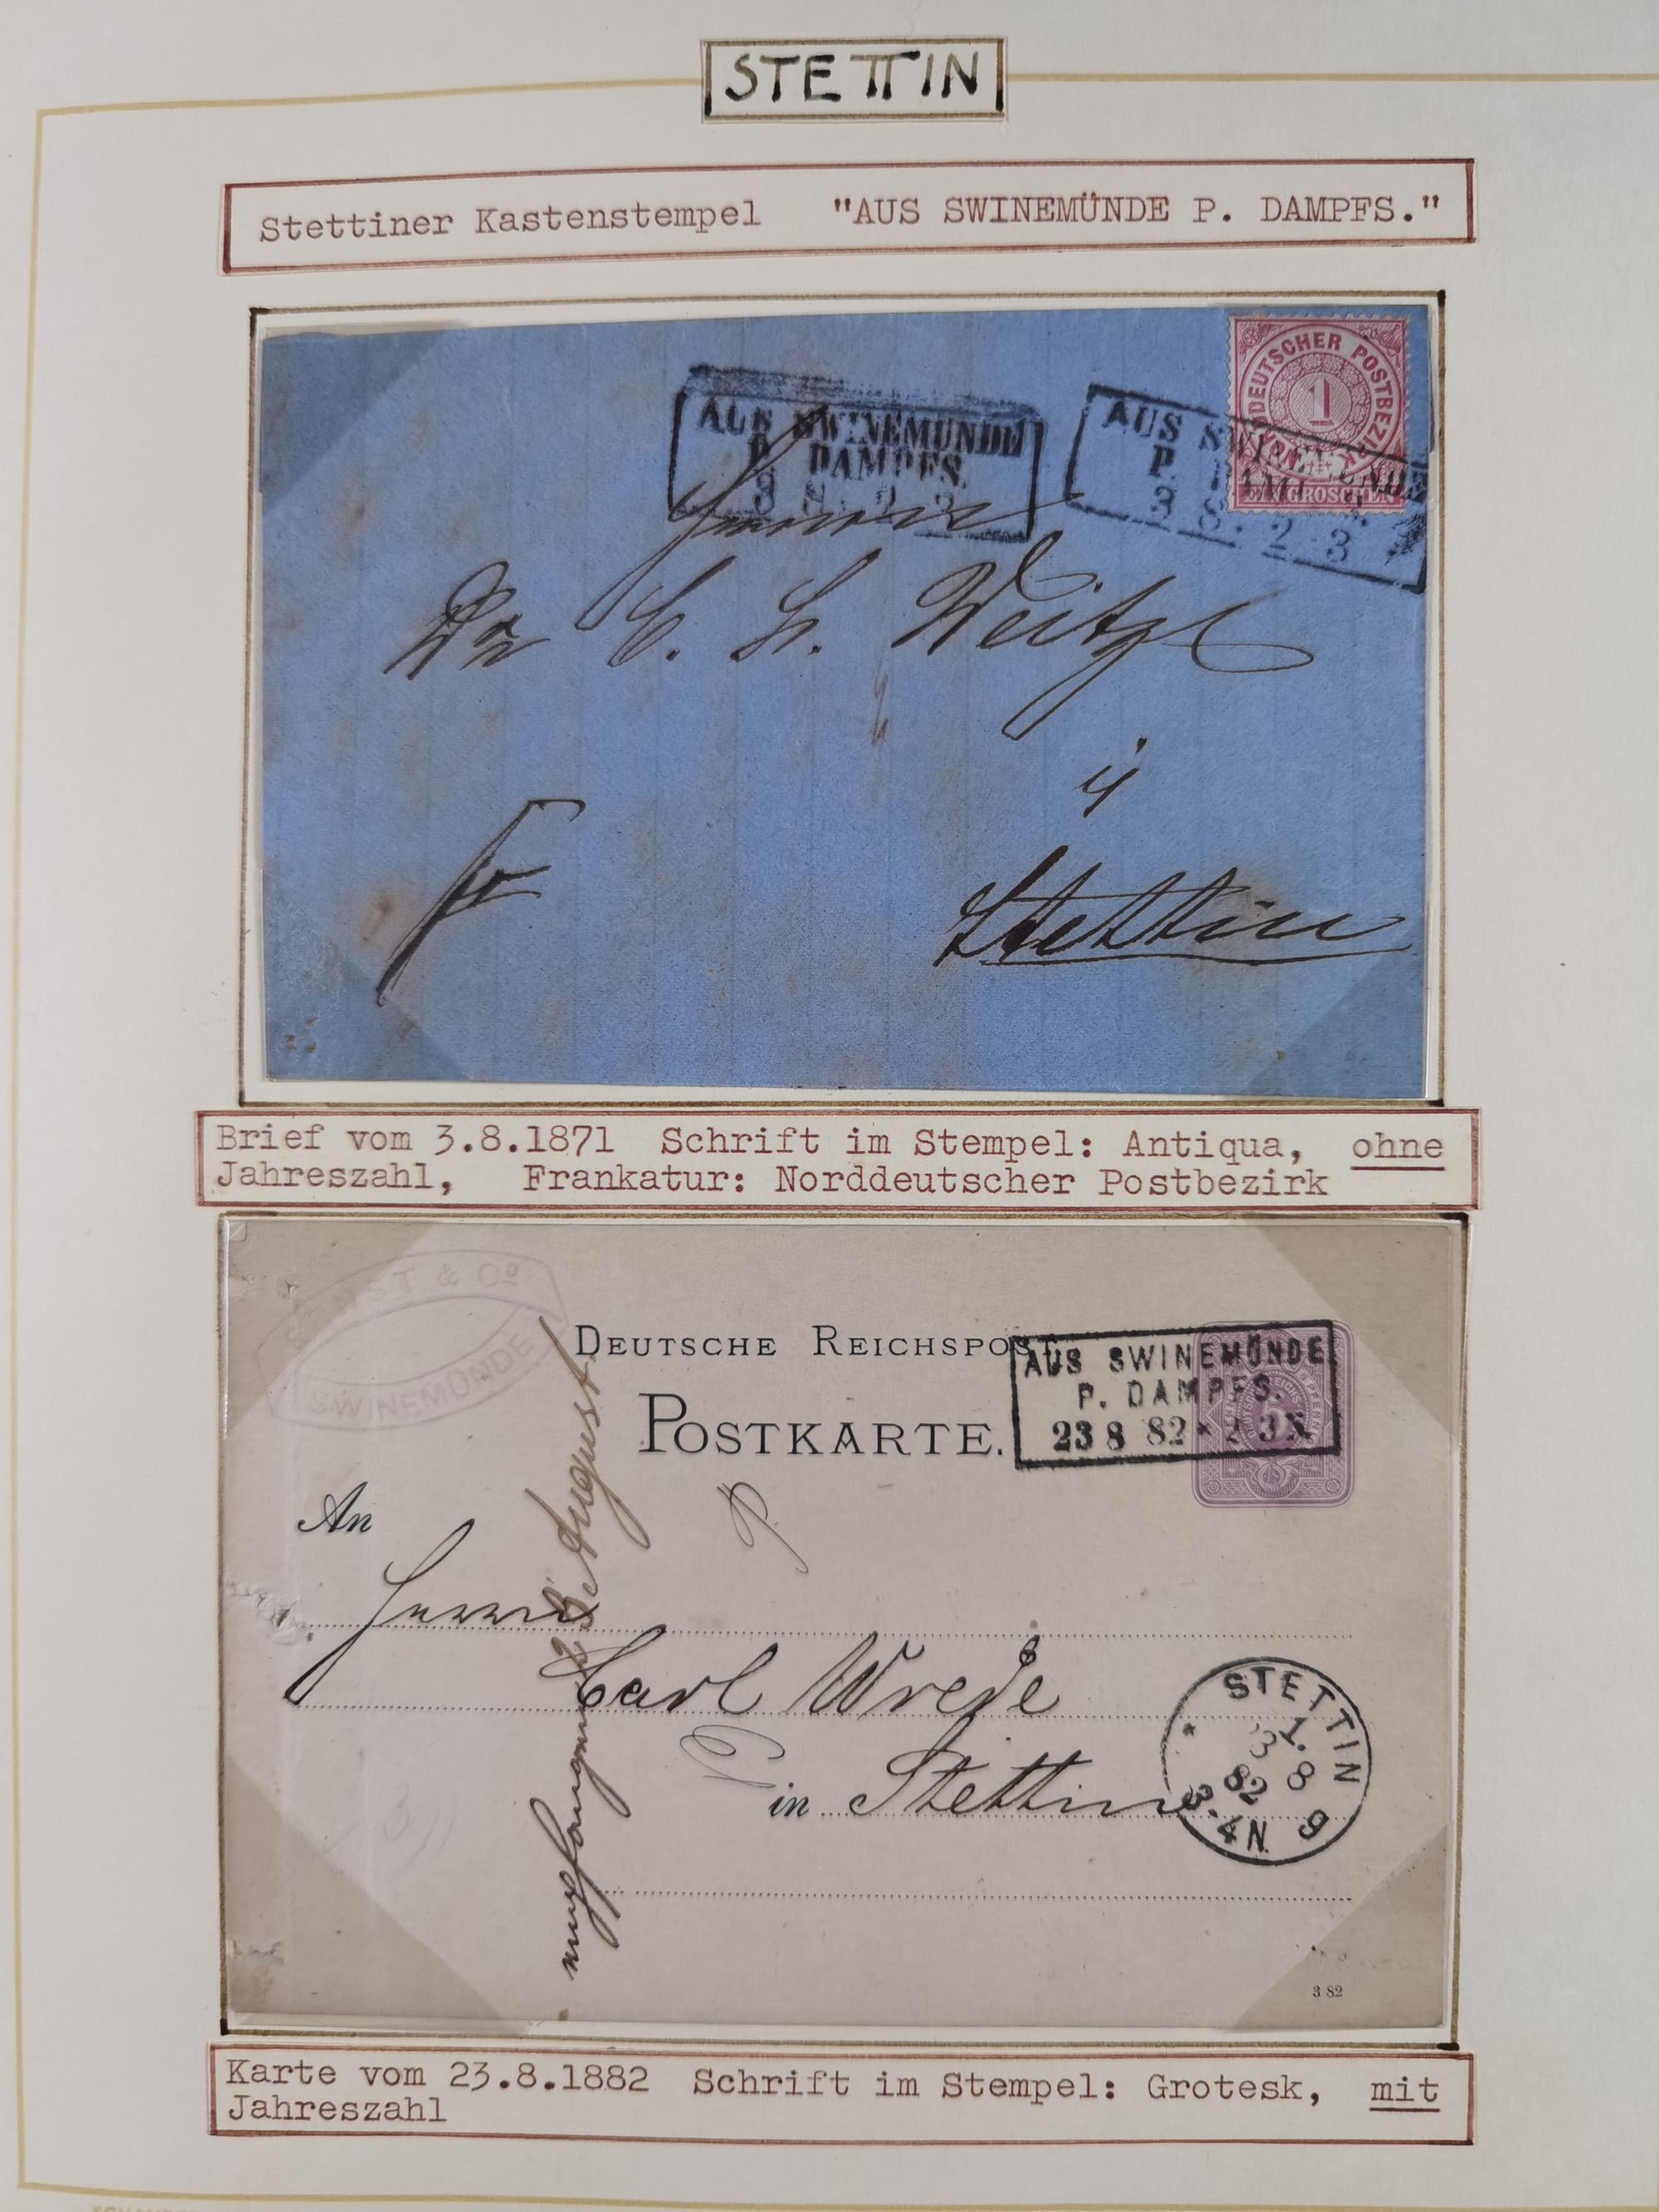 STETTIN
Stettiner Kastenstempel "AUS SWINEMÜNDE P. DAMPFS."
AUS SWINEMÜNDE
P. DAMPFS.
3 8. 2 3
AUS SWINEMÜNDE
P. DAMPFS.
3 8. 2 3
NORDDEUTSCHER POSTBEZIRK
1
EIN GROSCHEN
Herrn
Dr C. L. Weitzel
in
fr
Stettin
Brief vom 3.8.1871 Schrift im Stempel: Antiqua, ohne
Jahreszahl, Frankatur: Norddeutscher Postbezirk
ERNST & Co
SWINEMÜNDE
DEUTSCHE REICHSPOST
POSTKARTE.
AUS SWINEMÜNDE
P. DAMPFS.
23 8 82 * 2 3 N.
An
Herrn
Carl Wrede
in Stettin
empfangen 23 August
STETTIN
1.
8
82
3-4N
3 82
Karte vom 23.8.1882 Schrift im Stempel: Grotesk, mit
Jahreszahl